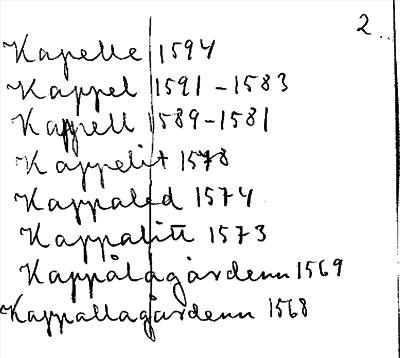 2.
Kapelle 1594
Kappel 1591-1583
Kappell 1589-1581
Kappelit 1578
Kappaled 1574
Kappalitt 1573
Kappålagårdenn 1569
Kappallagårdenn 1568